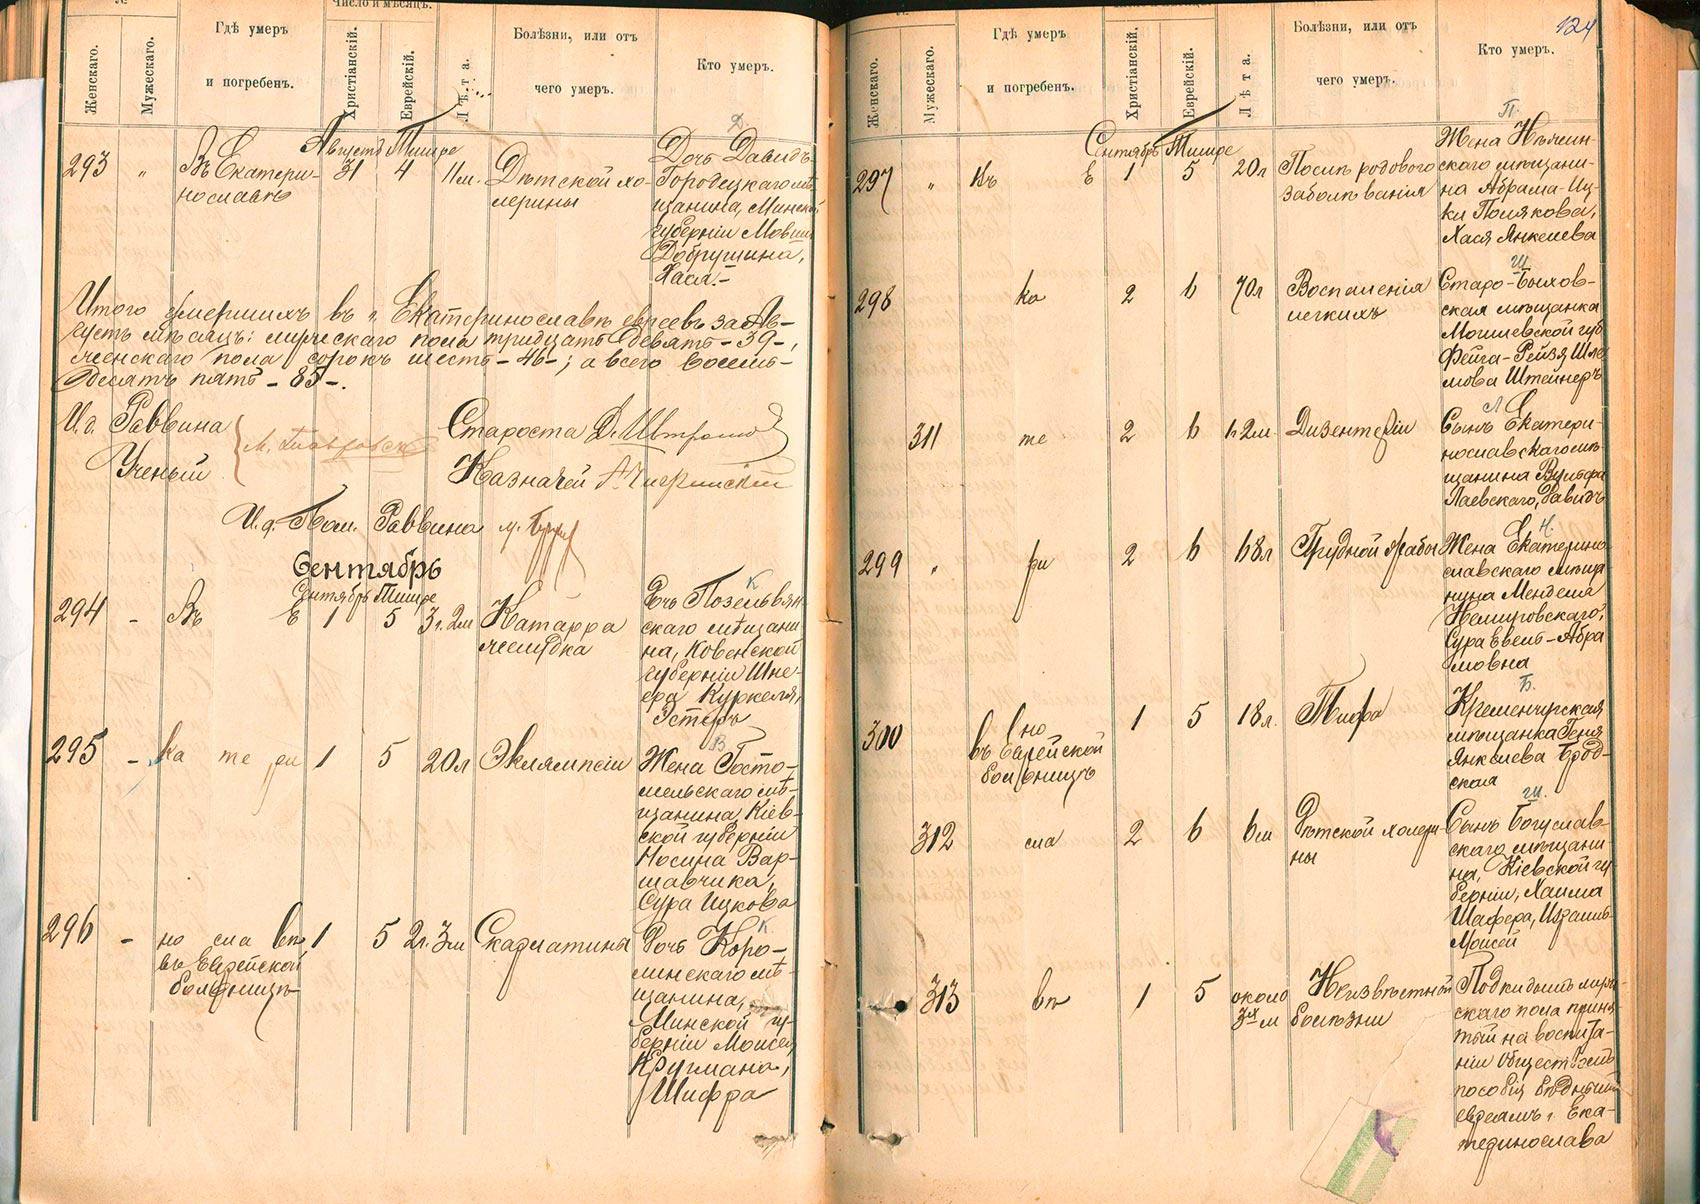 №
Число и мѣсяцъ.
Женскаго.
Мужескаго.
Гдѣ умеръ
и погребенъ.
Христіанскій.
Еврейскій.
Лѣта.
Болѣзни, или отъ
чего умеръ.
Кто умеръ.
Д.
Августъ Тишре
293 „ Въ Екатери-
нославѣ
31 4 11 м.
Дѣтской хо-
лерины
Дочь Давидъ-
Городецкаго мѣ-
щанина, Минской
губерніи Мовши
Добрушина,
Хася.-
Итого умершихъ въ г. Екатеринославѣ евреевъ за Ав-
густъ мѣсяцъ: мужескаго пола тридцать девять - 39 -,
женскаго пола сорокъ шесть - 46 -; а всего восемь-
десятъ пять - 85 -.
И. д. Раввина
Ученый
Староста
Казначей
И. д. Пом. Раввина
Сентябрь
Сентябрь Тишре
294 - Въ Е 1 5 3 г. 2 м
Катарра
желудка
К
Дочь Позельвян-
скаго мѣщани-
на, Ковенской
губерніи Шне-
ера Куркеля,
Эстеръ
295 - ка те ри 1 5 20 л Эклямпсіи
В
Жена Госто-
мельскаго мѣ-
щанина Кіев-
ской губерніи
Носина Вар-
шавчика,
Сура Ицкова
296 - но сла вѣ
въ Еврейской
больницѣ
1 5 2 г. 3 м Скарлатины
К.
Дочь Коро-
линскаго мѣ-
щанина,
Минской гу-
берніи Моисея
Кругмана,
Шифра
124
Женскаго.
Мужескаго.
Гдѣ умеръ
и погребенъ.
Христіанскій.
Еврейскій.
Лѣта.
Болѣзни, или отъ
чего умеръ.
Кто умеръ.
П.
Сентябрь Тишре
297 „ Въ Е 1 5 20 л
Послѣ родового
заболѣванія
Жена Нѣжин-
скаго мѣщани-
на Абрама-Иц-
ки Полякова,
Хася Янкелева
298 ка 2 6 70 л
Воспаленія
легкихъ
Ш
Старо-Быхов-
ская мѣщанка
Могилевской губ
Фейга-Рейзя Шле-
мова Штейнеръ
311 те 2 6 1 г. 2 м Дизентеріи
Л
Сынъ Екатери-
нославскаго мѣ-
щанина Вульфа
Лаевскаго, Давидъ
299 „ ри 2 6 68 л Грудной жабы
Н.
Жена Екатерино-
славскаго мѣща-
нина Менделя
Немировскаго,
Сура Евель-Абра
мовна
300 но
въ Еврейской
больницѣ
1 5 18 л. Тифа
Б.
Кременчугская
мѣщанка Геня
Янкелева Брод-
ская
312 сла 2 6 6 м
Дѣтской холери-
ны
Ш.
Сынъ Богуслав-
скаго мѣщани-
на, Кіевской гу-
берніи, Хаима
Шафера,
Моисей
313 вѣ 1 5 около
3х м
Неизвѣстной
болѣзни
Подкидышъ муже-
скаго пола приня-
тый на воспита-
ніи Обществомъ
пособія бѣднымъ
евреямъ г. Ека-
теринослава